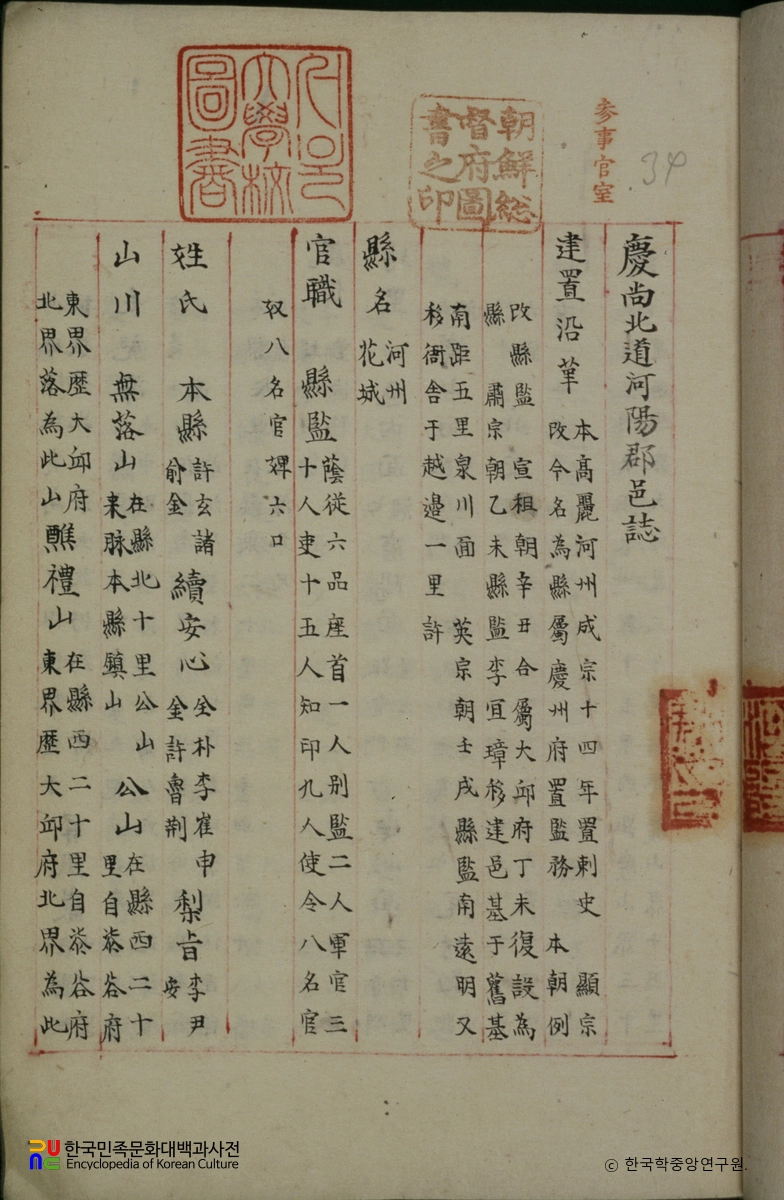 慶尚北道河陽郡邑誌
建置沿革 本高麗河州成宗十四年置刺史 顯宗
改今名為縣屬慶州府置監務 本朝例
改縣監 宣祖朝辛丑合屬大邱府丁未復設為
縣 肅宗朝乙未縣監李宜璋移建邑基于舊基
南距五里泉川面 英宗朝壬戌縣監南遠明又
移衙舍于越邊一里許
縣名 河州
花城
官職 縣監 蔭從六品座首一人別監二人軍官三
十人吏十五人知印九人使令八名官
奴八名官婢六口
姓氏 本縣 許玄諸
俞金
續安心 全朴李崔申
金許魯荊
梨旨 李尹
安
山川 無落山 在縣北十里公山
来脉本縣鎮山
公山 在縣西二十
里自柒谷府
東界歷大邱府
北界落為此山
醮禮山 在縣西二十里自柒谷府
東界歷大邱府北界為此
朝鮮総
督府圖
書之印
参事官室
34
大學校
圖書
한국민족문화대백과사전
Encyclopedia of Korean Culture
ⓒ 한국학중앙연구원.